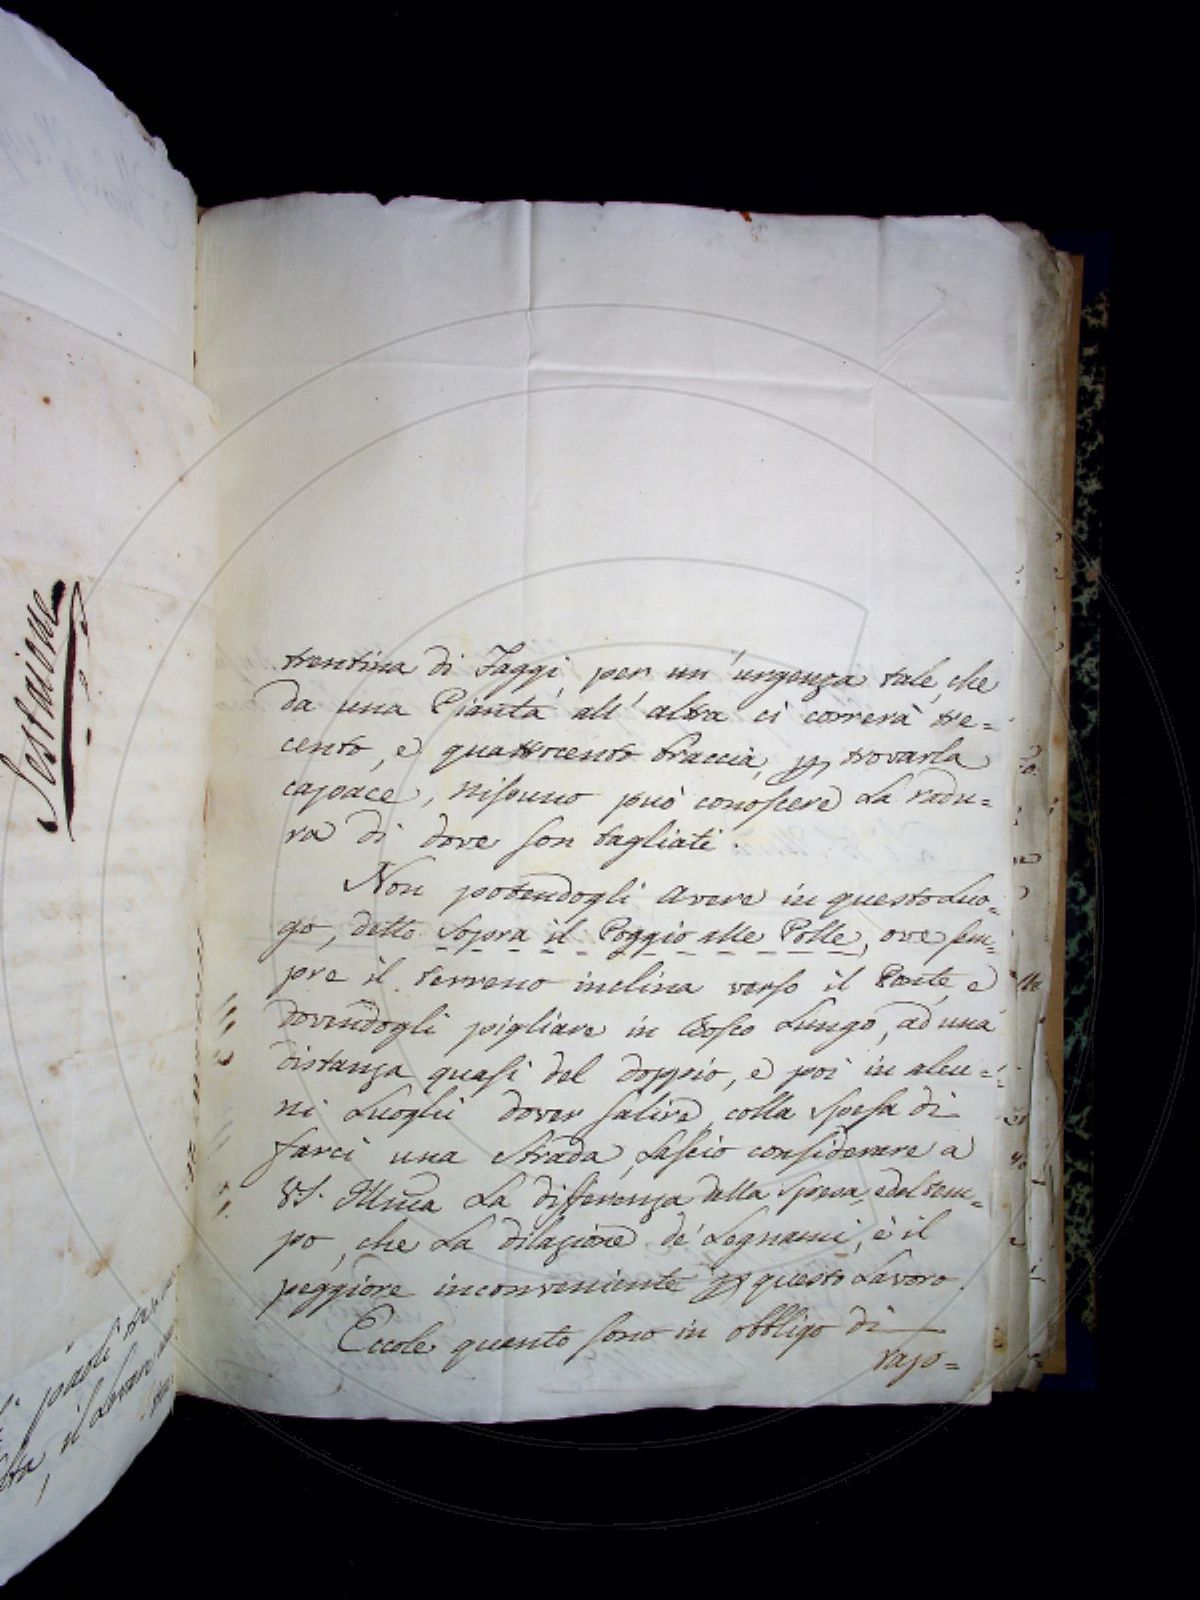 Sestaione
trentina di Faggi, per un'urgenza tale, che
da una Pianta all'altra ci correrà tre=
cento, e quattrocento braccia, p trovarla
capace, nissuno può conoscere la radu=
ra di dove son tagliati.
Non potendogli avere in questo Luo=
go, detto sopra il Poggio alle Polle, ove sem=
pre il terreno inclina verso il Ponte, e
dovendogli pigliare in Bosco Lungo, ad una
distanza quasi del doppio, e poi in alcu=
ni Luoghi dover salire, colla spesa di
farci una strada, Lascio considerare a
VS. Illma La differenza della spesa, e del tem=
po, che La dilazione de' Legnami, è il
peggiore inconveniente p questo Lavoro.
Eccole quanto sono in obbligo di
rapo=